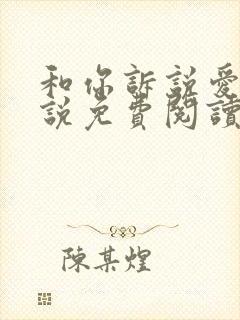 和你訴說愛
說免費閱讀
陳某煌